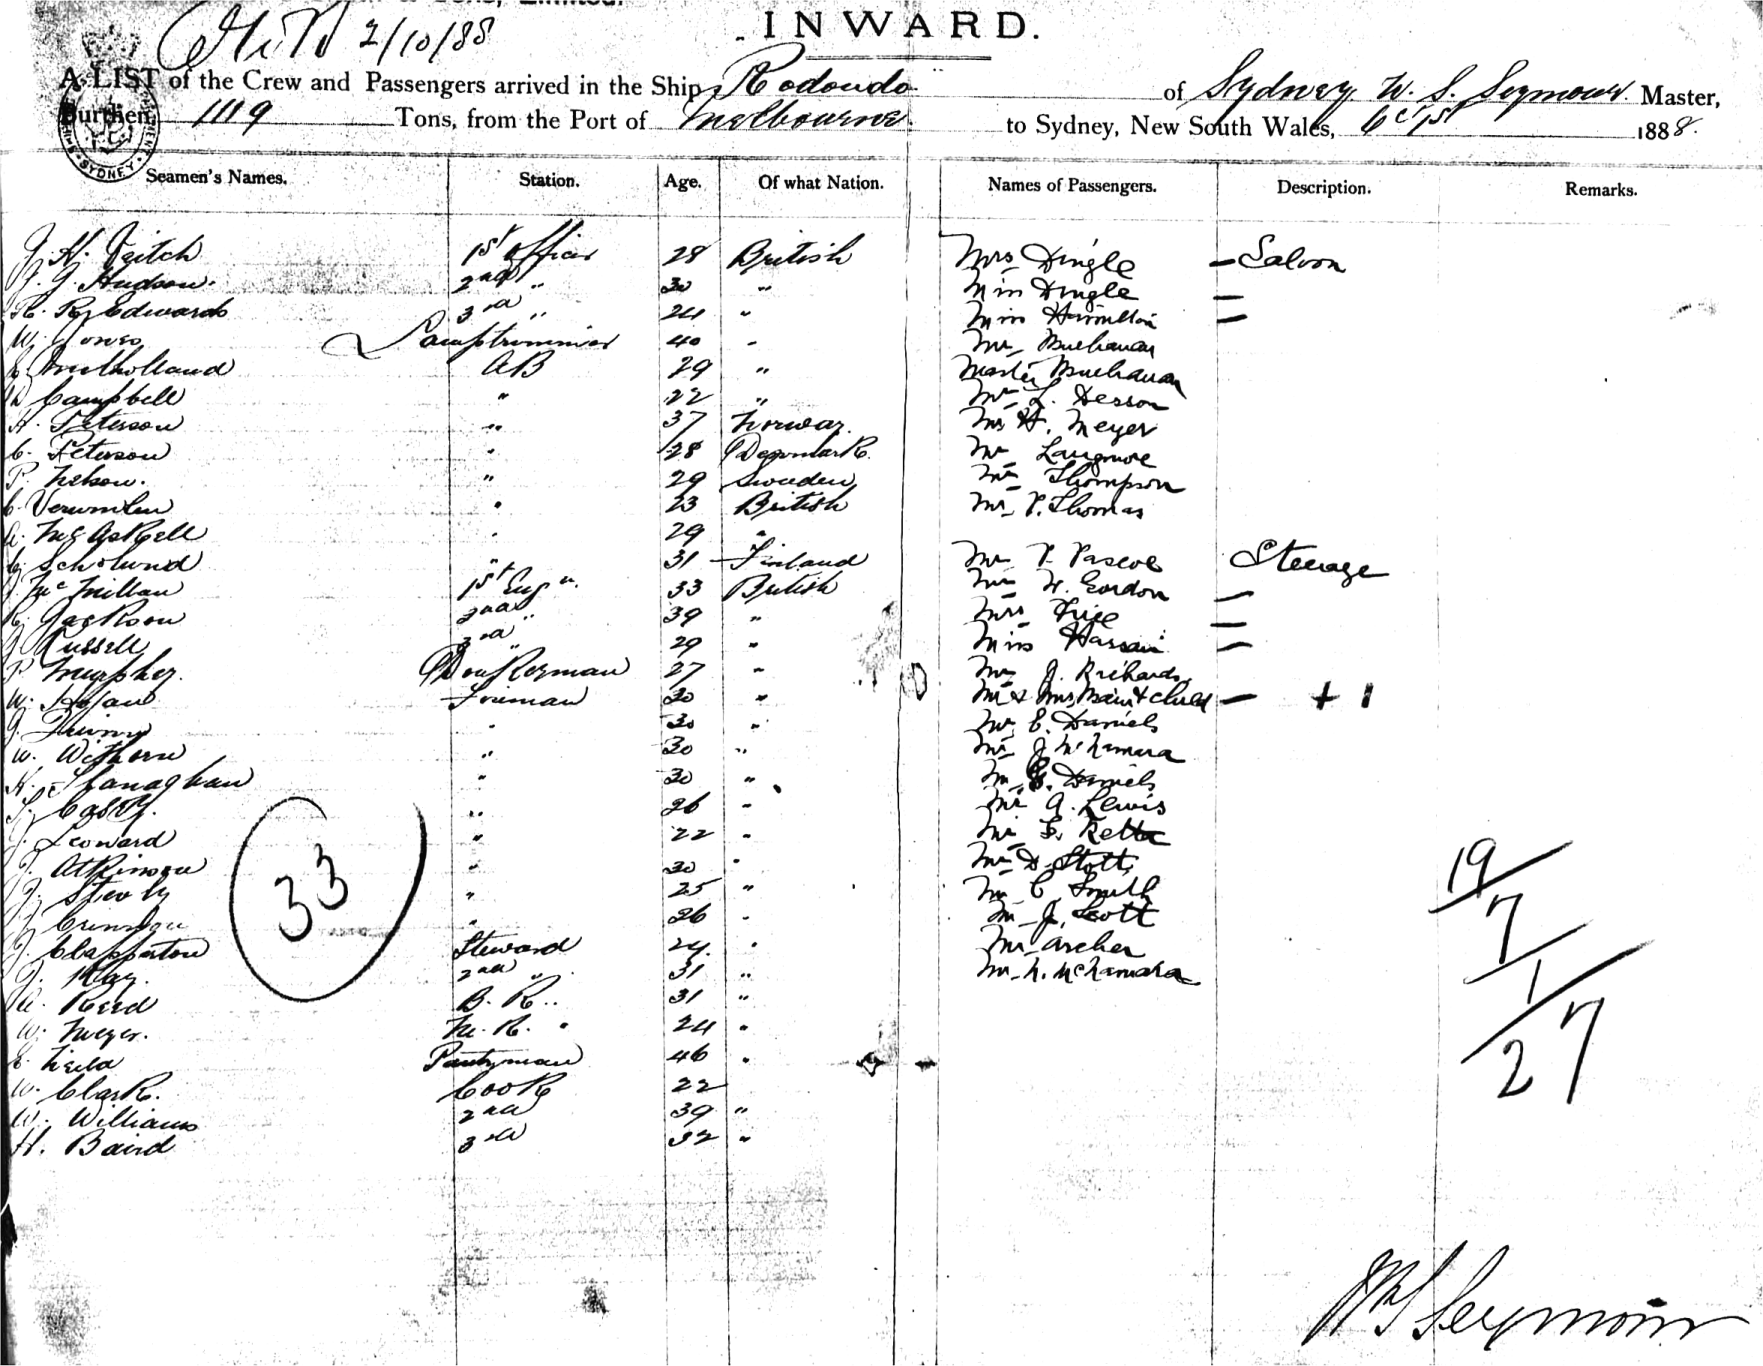 2/10/88
INWARD.
A LIST of the Crew and Passengers arrived in the Ship Rodondo of Sydney W. S. Seymour Master,
Burthen 1119 Tons, from the Port of Melbourne to Sydney, New South Wales, 1st 1888.
Seamen's Names. Station. Age. Of what Nation. Names of Passengers. Description. Remarks.
J. H. Veitch 1st Officer 28 British Mrs Dingle — Saloon
J. Hudson. 2nd " 30 " Miss Dingle —
R. R. Edwards 3rd " 24 " Miss Hamilton —
W. Jones Lamptrimmer 40 " Mr Buchanan
Mulholland AB 29 " Master Buchanan
D Campbell " 22 " Mr L. Desson
H. Peterson " 37 Norway. Mr H. Meyer
C. Peterson " 28 Denmark. Mr Langmore
P. Nelson. " 29 Sweden Mr Thompson
C. " 23 British Mr P. Thomas
A. McAskell " 29 "
C. Scholund " 31 Finland Mr P. Pascoe Steerage
J. McMillan 1st Engr. 33 British Mr W. Gordon —
R. Jackson 2nd " 39 " Mrs —
J Russell 3rd " 29 " Miss —
P Murphy. Donkeyman 27 " Mr J. Richards
W. Fireman 30 " Mr & Mrs Main & child — + 1
J. " 30 " Mr E. Daniels
W. Withorn " 30 " Mr J McNamara
H. Flanaghan " 30 " Mr Daniels
" 26 " Mr A. Lewis
J. Leonard " 22 " Mr
J. Atkinson " 30 " Mr D. Stott
J. " 25 " Mr C. Smith
J " 26 " Mr J. Scott
J. Clapperton Steward 24. " Mr Archer
J. May. 2nd " 31 " Mr N. McNamara
Reed B. R. " 31 "
W. Meyer. M. R. " 24 "
Pantryman 46 "
W. Clark. Cook 22
W. Williams 2nd 39 "
H. Baird 3rd 32 "
33
19
7
1
27
W S Seymour